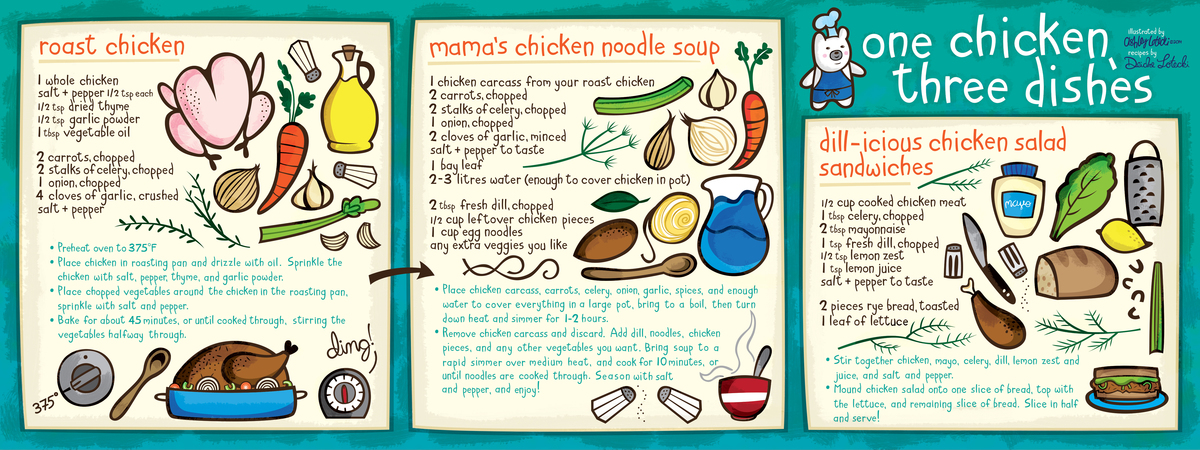 roast chicken
1 whole chicken
salt + pepper 1/2 tsp each
1/2 tsp dried thyme
1/2 tsp garlic powder
1 tbsp vegetable oil
2 carrots, chopped
2 stalks of celery, chopped
1 onion, chopped
4 cloves of garlic, crushed
salt + pepper
• Preheat oven to 375°F
• Place chicken in roasting pan and drizzle with oil. Sprinkle the
chicken with salt, pepper, thyme, and garlic powder.
• Place chopped vegetables around the chicken in the roasting pan,
sprinkle with salt and pepper.
• Bake for about 45 minutes, or until cooked through, stirring the
vegetables halfway through.
375°
ding!
mama's chicken noodle soup
1 chicken carcass from your roast chicken
2 carrots, chopped
2 stalks of celery, chopped
1 onion, chopped
2 cloves of garlic, minced
salt + pepper to taste
1 bay leaf
2-3 litres water (enough to cover chicken in pot)
2 tbsp fresh dill, chopped
1/2 cup leftover chicken pieces
1 cup egg noodles
any extra veggies you like
• Place chicken carcass, carrots, celery, onion, garlic, spices, and enough
water to cover everything in a large pot, bring to a boil, then turn
down heat and simmer for 1-2 hours.
• Remove chicken carcass and discard. Add dill, noodles, chicken
pieces, and any other vegetables you want. Bring soup to a
rapid simmer over medium heat, and cook for 10 minutes, or
until noodles are cooked through. Season with salt
and pepper, and enjoy!
one chicken,
three dishes
illustrated by
recipes by
dill-icious chicken salad
sandwiches
1/2 cup cooked chicken meat
1 tbsp celery, chopped
2 tbsp mayonnaise
1 tsp fresh dill, chopped
1/2 tsp lemon zest
1 tsp lemon juice
salt + pepper to taste
2 pieces rye bread, toasted
1 leaf of lettuce
mayo
• Stir together chicken, mayo, celery, dill, lemon zest and
juice, and salt and pepper.
• Mound chicken salad onto one slice of bread, top with
the lettuce, and remaining slice of bread. Slice in half
and serve!